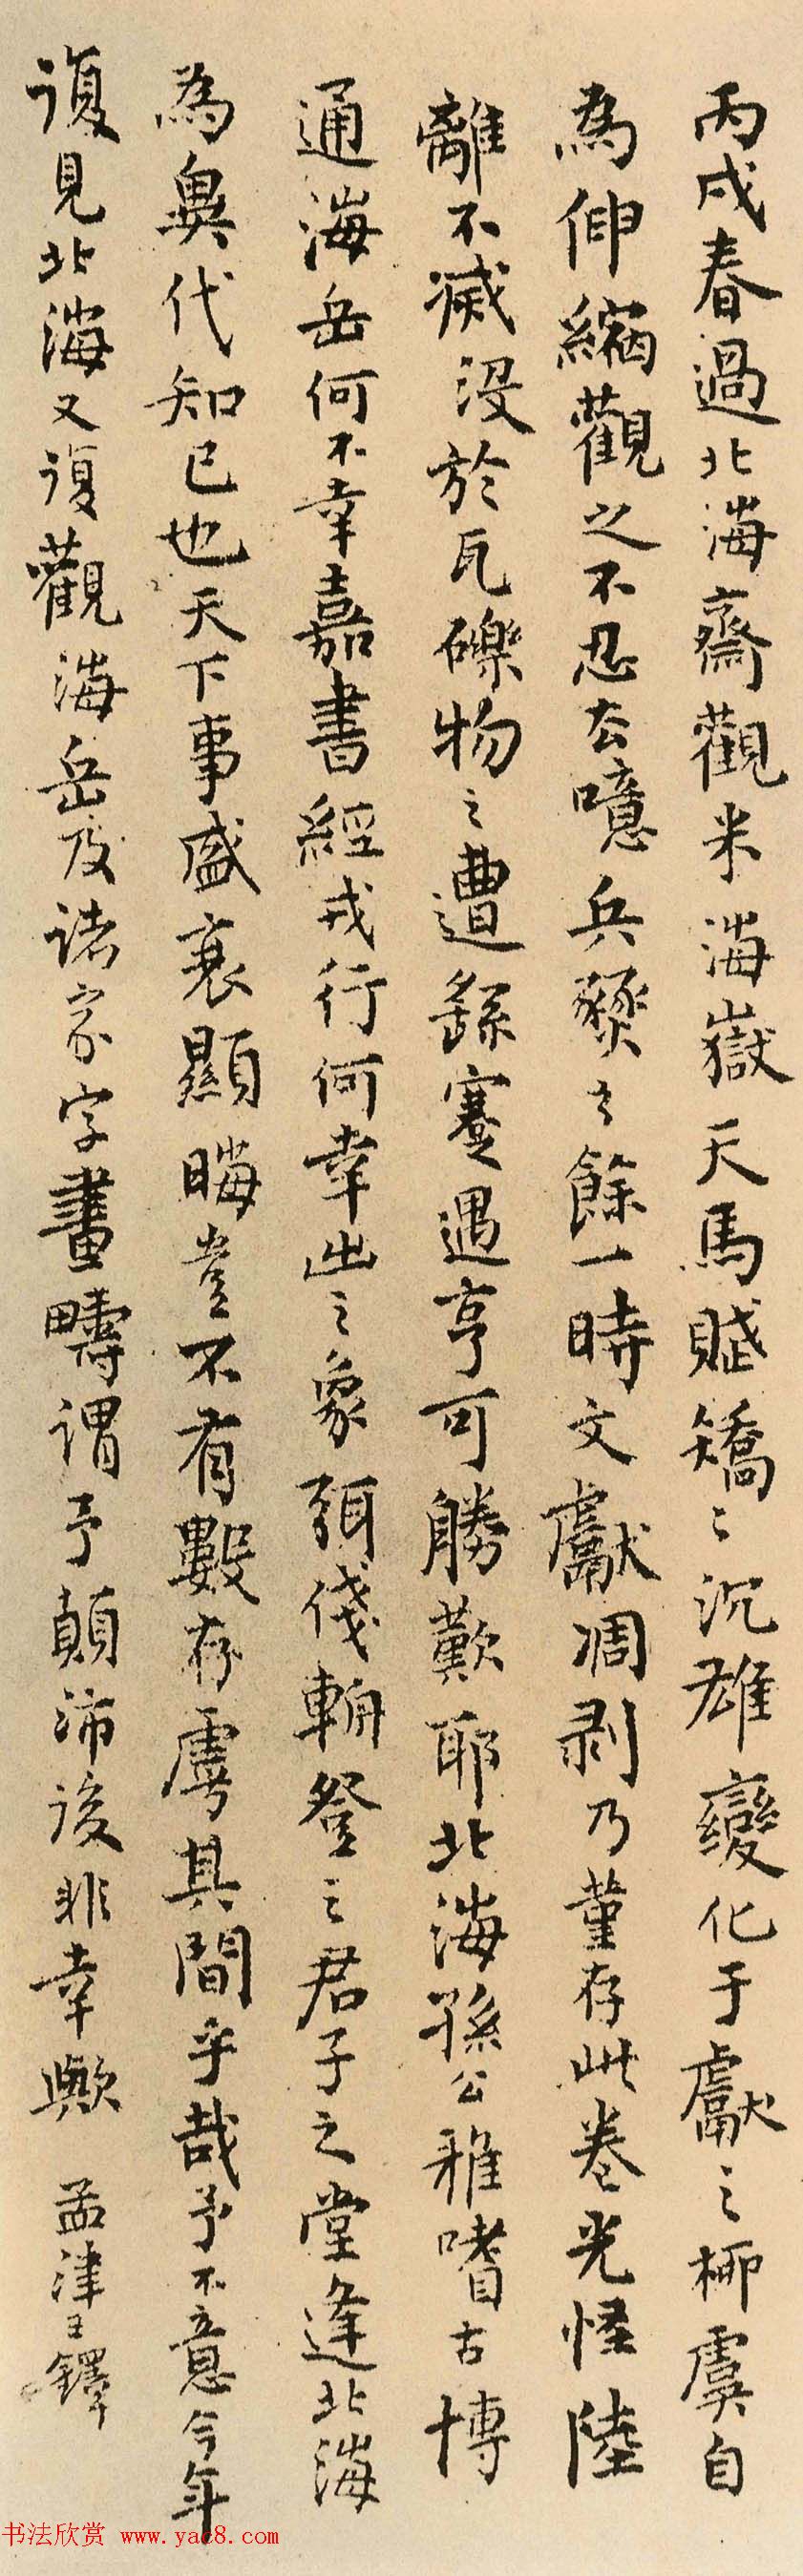 丙戌春過北海齋觀米海嶽天馬賦矯〻沉雄變化于獻之柳虞自
為伸縮觀之不忍去噫兵燹之餘一時文獻凋剥乃堇存此卷光怪陸
離不滅没於瓦礫物之遭繇蹇遇亨可勝歎耶北海孫公雅嗜古博
通海岳何不幸嘉書經戎行何幸出之象珥俴輈登之君子之堂逢北海
為異代知已也天下事盛衰顯晦豈不有數存虖其間乎哉予不意今年
復見北海又復觀海岳及諸家字畫疇謂予顛沛後非幸歟 孟津王鐸
书法欣赏 www.yac8.com